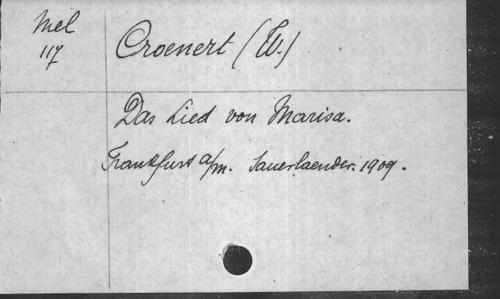 Mel
117
Croenert (W.)
Das Lied von Marisa.
Frankfurt a/m. Sauerlaender. 1909.